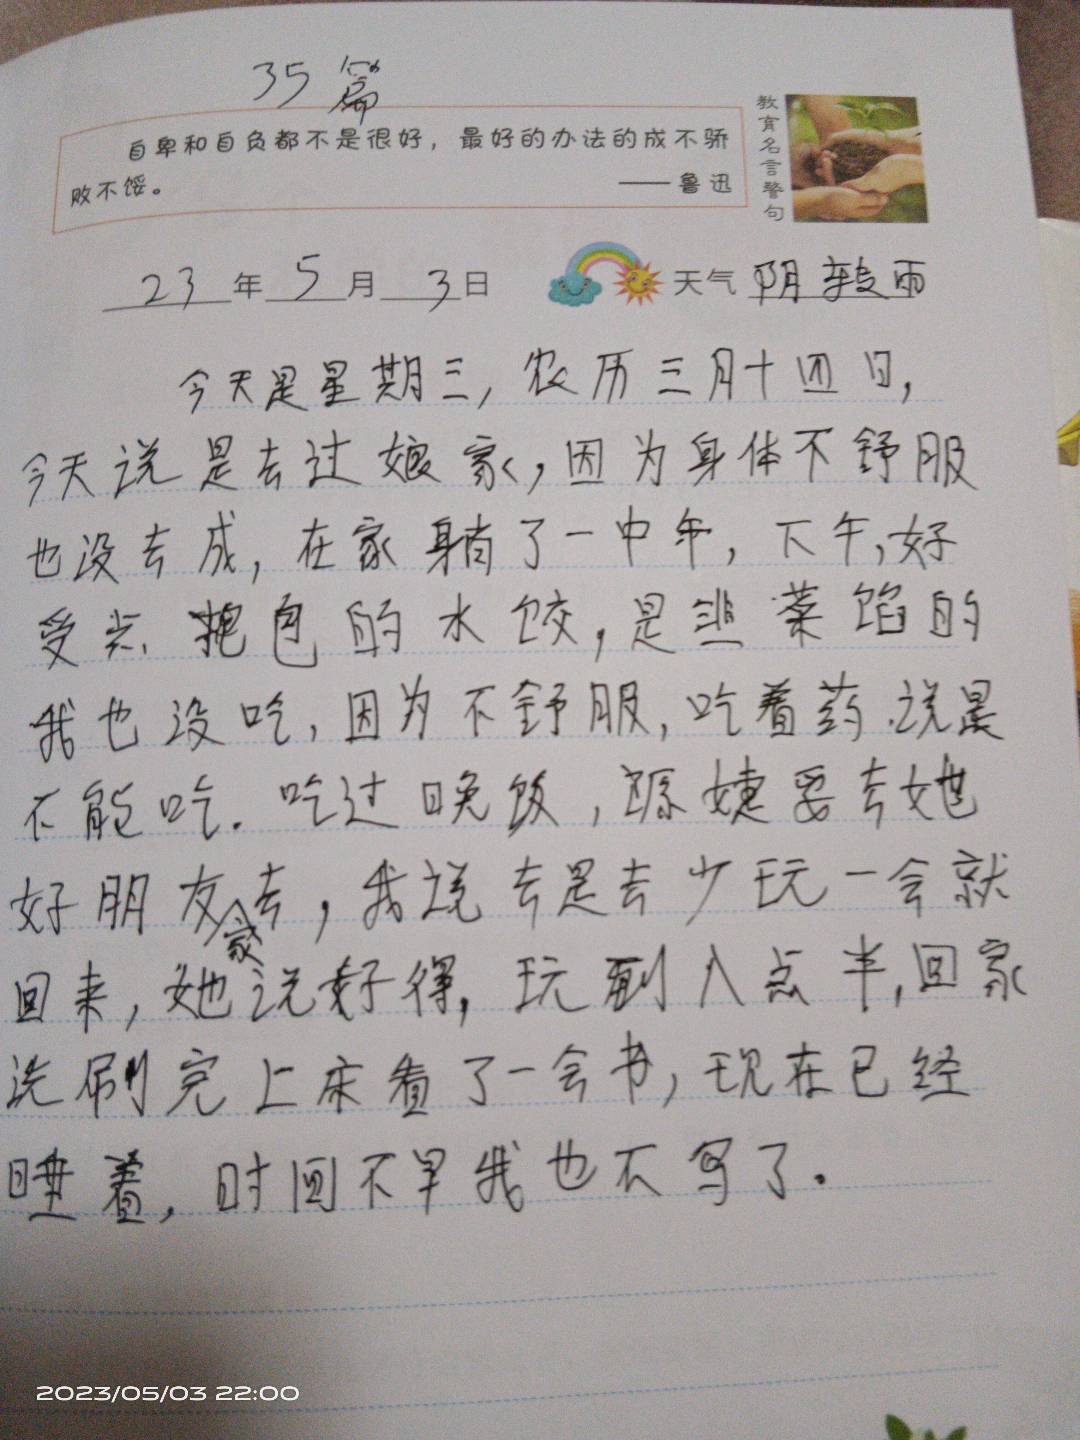 35篇
自卑和自负都不是很好，最好的办法的成不骄
败不馁。
——鲁迅
教育名言警句
23年5月3日 天气 阴转雨
今天是星期三，农历三月十四日，
今天说是去过娘家，因为身体不舒服
也没去成，在家躺了一中午，下午，好
受点.包的水饺，是韭菜馅的
我也没吃，因为不舒服，吃着药.说是
不能吃.吃过晚饭，婕要去她
好朋友家去，我说去是去少玩一会就
回来，她说好得，玩到八点半，回家
洗刷完上床看了一会书，现在已经
睡着，时间不早我也不写了.
2023/05/03 22:00